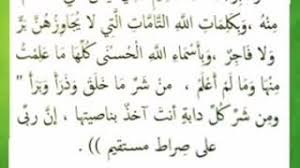 مِنْهُ ، وَبِكَلِمَاتِ اللَّهِ التَّامَّاتِ الَّتِي لَا يُجَاوِزُهُنَّ بَرٌّ
وَلَا فَاجِرٌ ، وَبِأَسْمَاءِ اللَّهِ الْحُسْنَى كُلِّهَا مَا عَلِمْتُ
مِنْهَا وَمَا لَمْ أَعْلَمْ ، مِنْ شَرِّ مَا خَلَقَ وَذَرَأَ وَبَرَأَ "
وَمِنْ شَرِّ كُلِّ دابةٍ أنتَ آخذٌ بناصيتها ، إنَّ ربِّى
على صِراط مستقيم )) .